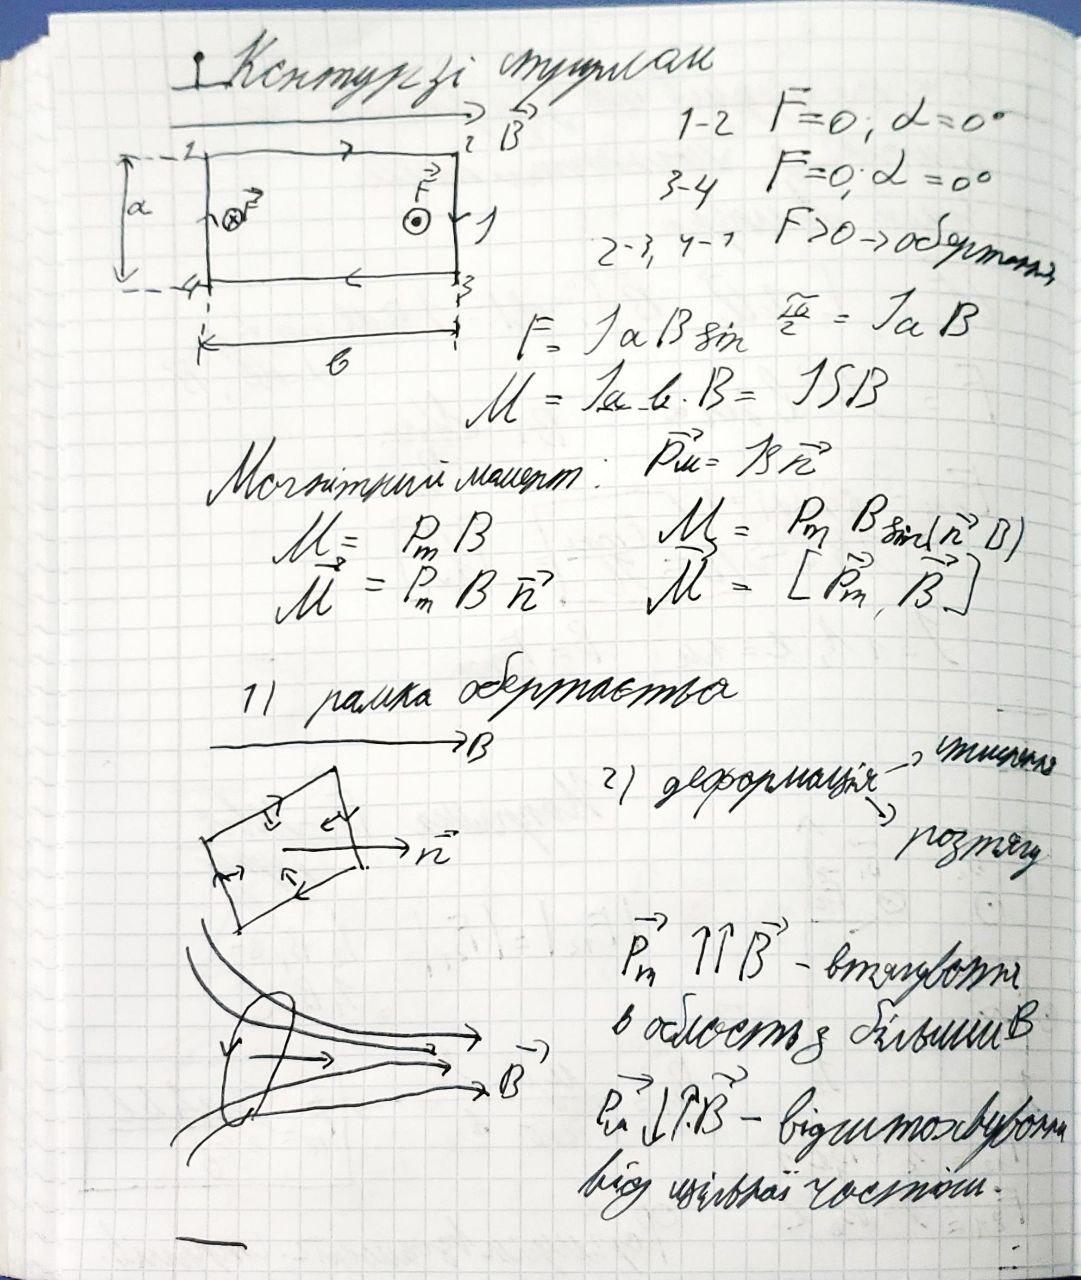 Контур зі струмом
B⃗
1 2
1-2 F=0; α=0°
3-4 F=0; α=0°
a
F⃗ F⃗
I
2-3, 4-1 F>0 → обертання
4 3
в
F = I a B sin π/2 = I a B
M = I a · в · B = I S B
Магнітний момент: P⃗m = I S n⃗
M = Pm B
M = Pm B sin(n⃗ B)
M⃗ = Pm B n⃗
M⃗ = [P⃗m, B⃗]
1) рамка обертається
B
2) деформація → стиснення
→ розтягу
n⃗
P⃗m ↑↑ B⃗ – втягування
в область з більшим B
B⃗
P⃗m ↓↑ B⃗ – відштовхування
від щільної частини.